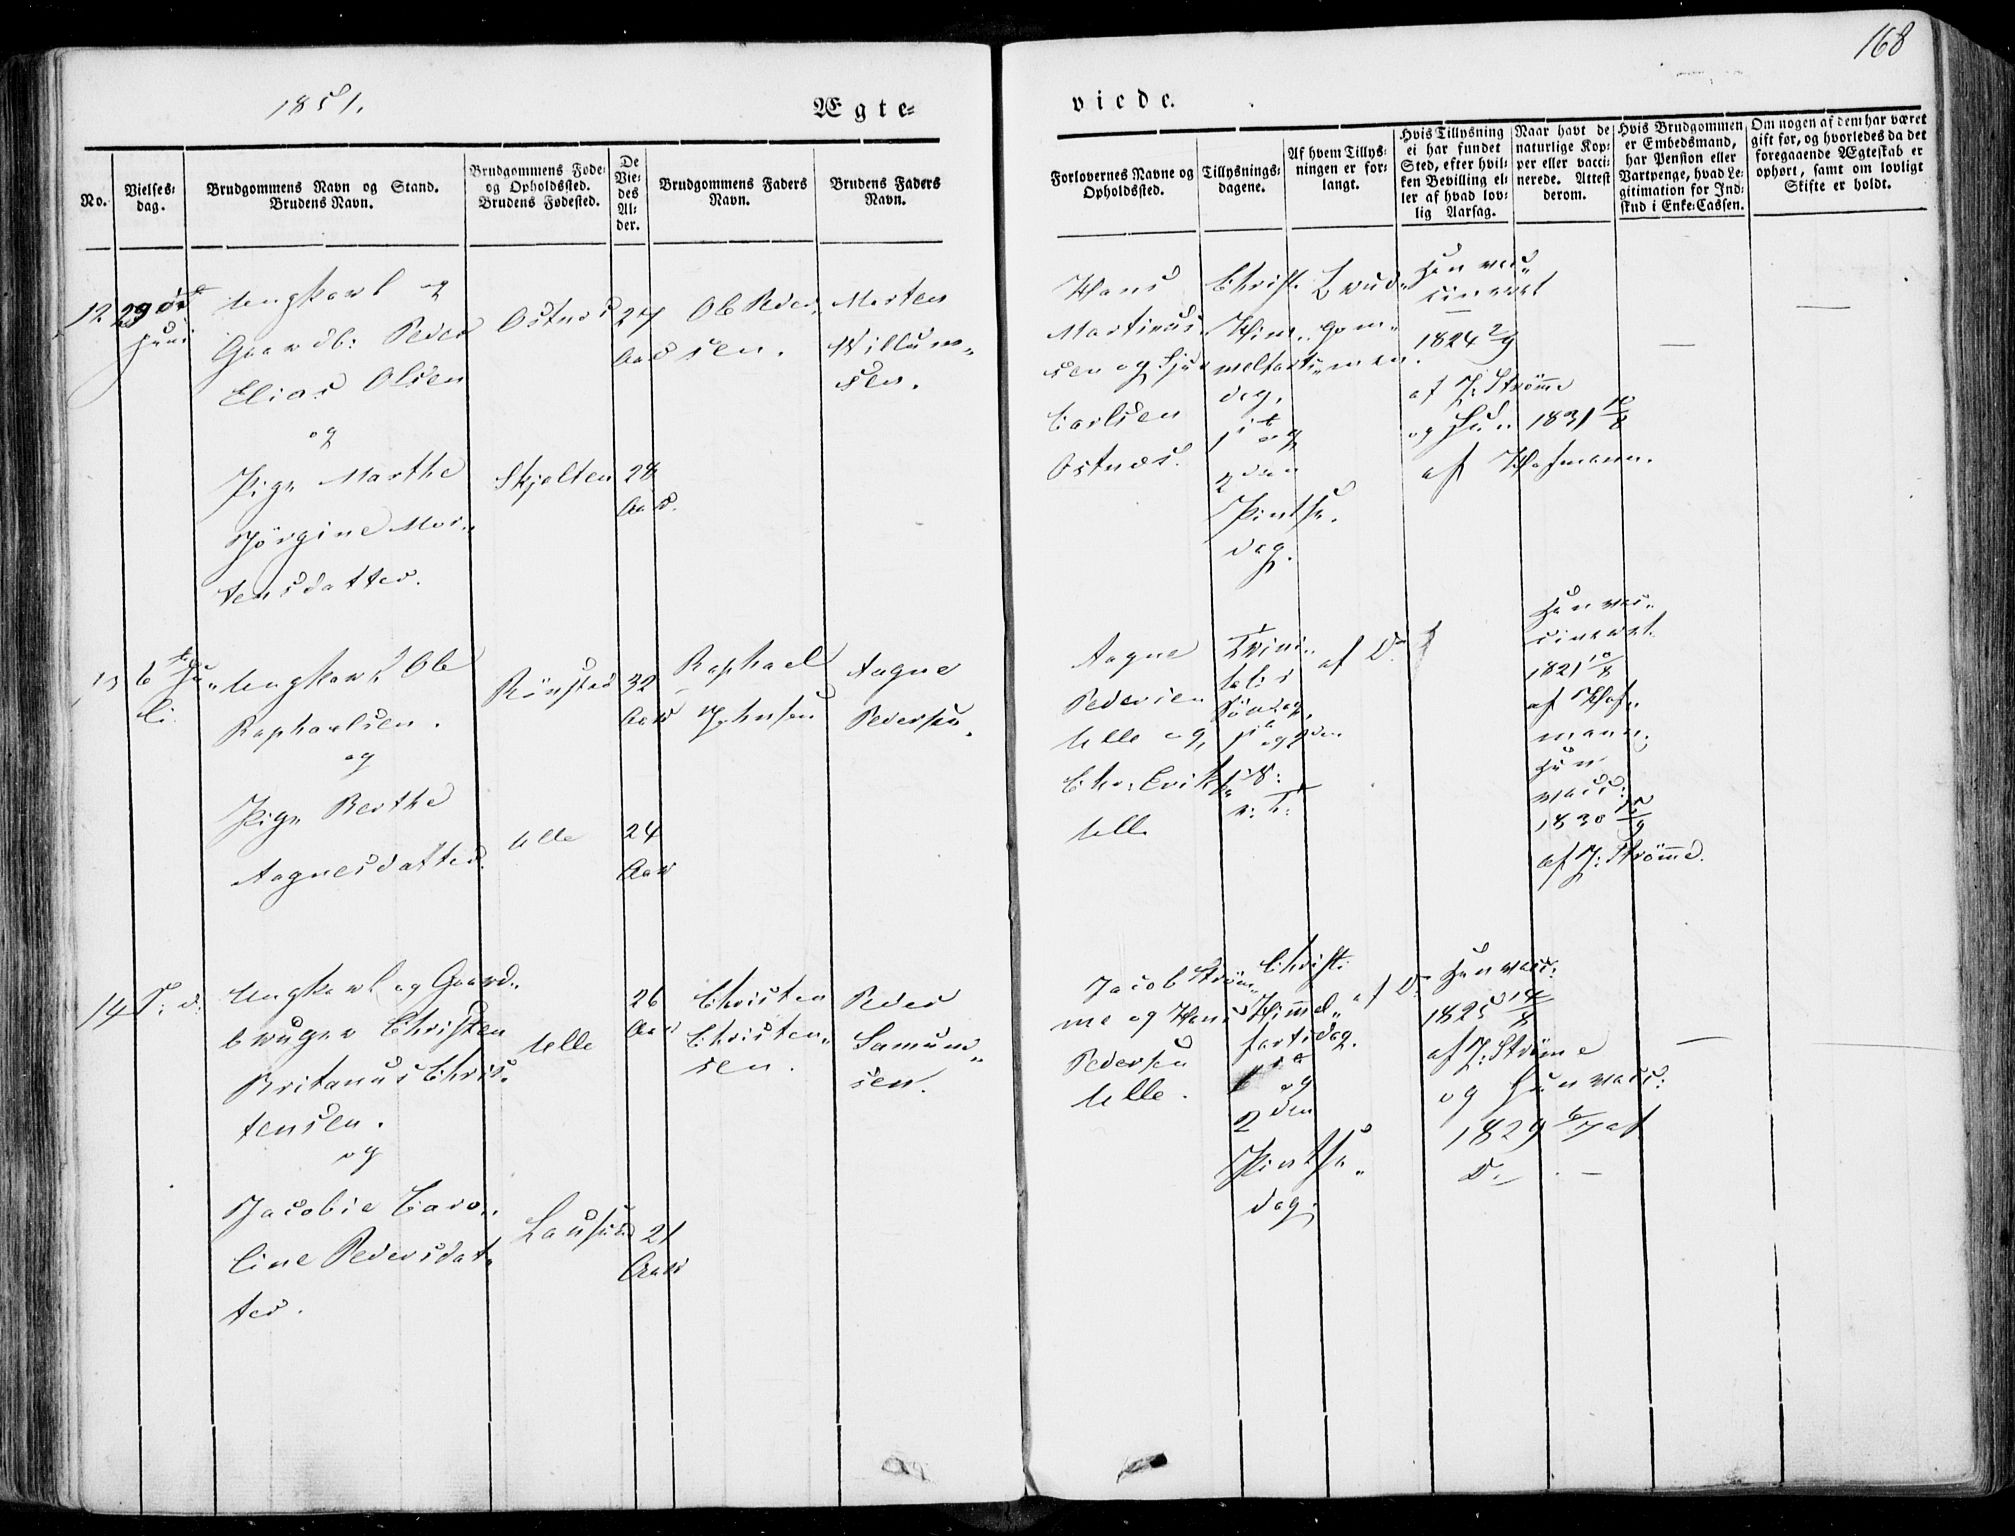 168
1851.
Ægte-
viede.
No.
Vielses-
dag.
Brudgommens Navn og Stand.
Brudens Navn.
Brudgommens Føde-
og Opholdssted.
Brudens Fødested.
De
Vie-
des
Al-
der.
Brudgommens Faders
Navn.
Brudens Faders
Navn.
Forlovernes Navne og
Opholdssted.
Tillysnings-
dagene.
Af hvem Tillys-
ningen er for-
langt.
Hvis Tillysning
ei har fundet
Sted, efter hvil-
ken Bevilling el-
ler af hvad lov-
lig Aarsag.
Naar havt de
naturlige Kop-
per eller vacci-
nerede. Attest
derom.
Hvis Brudgommen
er Embedsmand,
har Pension eller
Vartpenge, hvad Le-
gitimation for Ind-
skud i Enke-Cassen.
Om nogen af dem har været
gift før, og hvorledes da det
foregaaende Ægteskab er
ophørt, samt om lovligt
Skifte er holdt.
12
29de
Juni
Ungkarl og
Gaardb: Peder
Elias Olsen
og
Pige Marthe
Jörgine Mor-
tensdatter.
Ostnes
Skjelten
27
Aar
28
Aar.
Ole Peder-
sen.
Morten
Willum-
sen.
Hans
Martinus-
sen og
Carlsen
Ostnæs.
Christi
Him-
melfarts-
dag,
1ste og
2den
Pintse-
dag.
Brud-
gom-
men.
Han vac-
cineret
1824 2/9
af J: Strömme
og Hun 1831 10/8
af Hofmann.
13
6te Ju-
li.
Ungkarl Ole
Raphaelsen.
og
Pige Berthe
Aagnesdatter.
Rönstad
Ulle
32
Aar
24
Aar
Raphael
Johnsen
Aagne
Pedersen.
Aagne
Pedersen
Ulle og
Chr: Erik
Ulle
Trini-
tatis
Söndag,
1ste og 2den
af Do
Han vac-
cineret
1821 10/8
af Hof-
mann,
Hun
vacc:
1830
af J: Strömme.
14
S: D:
Ungkarl og Gaard-
bruger Christen
Britanus Chris-
tensen.
og
Jacobie Caro-
line Pedersdat-
ter.
Ulle
Longva
26
Aar
21
Aar
Christen
Christen-
sen.
Peder
Samuns-
sen.
Jacob Ström-
me og Hans
Pedersen
Ulle.
Christi
Himmel-
fartsdag.
1ste
og
2den
Pintse-
dag.
af Do
Han vacc:
1825 14/8
af J: Strömme
og Hun vacc:
1829 6/7 af
D: